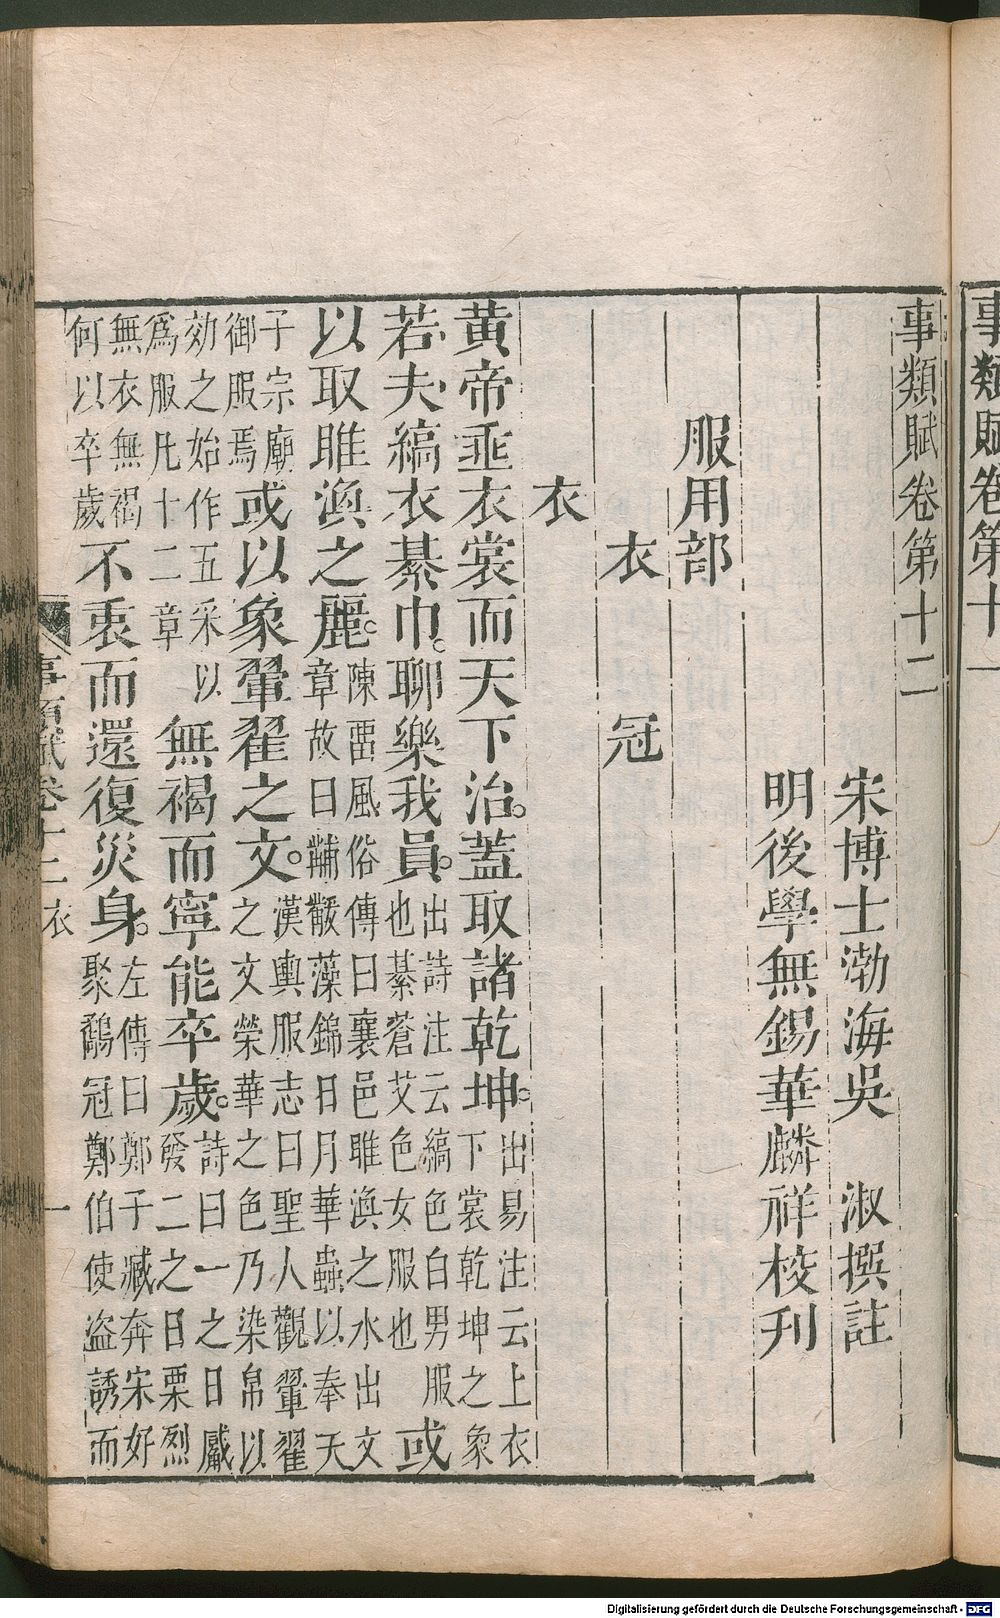 事類賦卷第十一
事類賦卷第十二
宋博士渤海吳 淑撰註
明後學無錫華麟祥校刊
服用部
衣 冠
衣
黃帝垂衣裳而天下治。蓋取諸乾坤。出易注云上衣下裳乾坤之象
若夫縞衣綦巾。聊樂我員。出詩注云縞色白男服也綦蒼艾色女服也或
以取睢渙之麗。陳畱風俗傳曰襄邑睢渙之水出文章故曰黼黻藻錦日月華蟲以奉天
子宗廟御服焉或以象翬翟之文。漢輿服志曰聖人觀翬翟之文榮華之色乃染帛以
効之始作五采以爲服凡十二章無褐而寧能卒歲。詩曰一之日觱發二之日栗烈
無衣無褐何以卒歲不衷而還復災身。左傳曰鄭子臧奔宋好聚鷸冠鄭伯使盜誘而
事類賦卷十二 衣 一
Digitalisierung gefördert durch die Deutsche Forschungsgemeinschaft - DFG